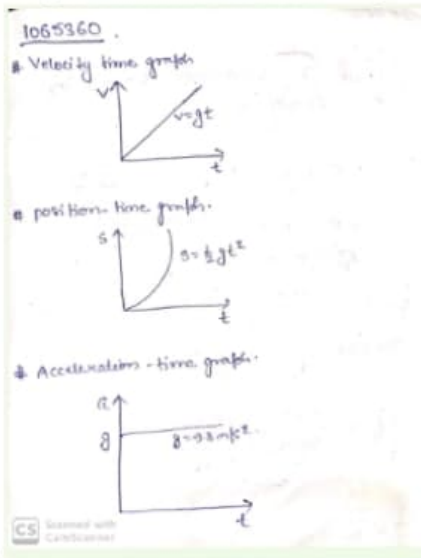 1065360.
Velocity time graph
v
v=gt
t
position-time graph.
s
s=½gt²
t
Acceleration-time graph.
a
g
g=9.8m/s²
t
CS Scanned with
CamScanner